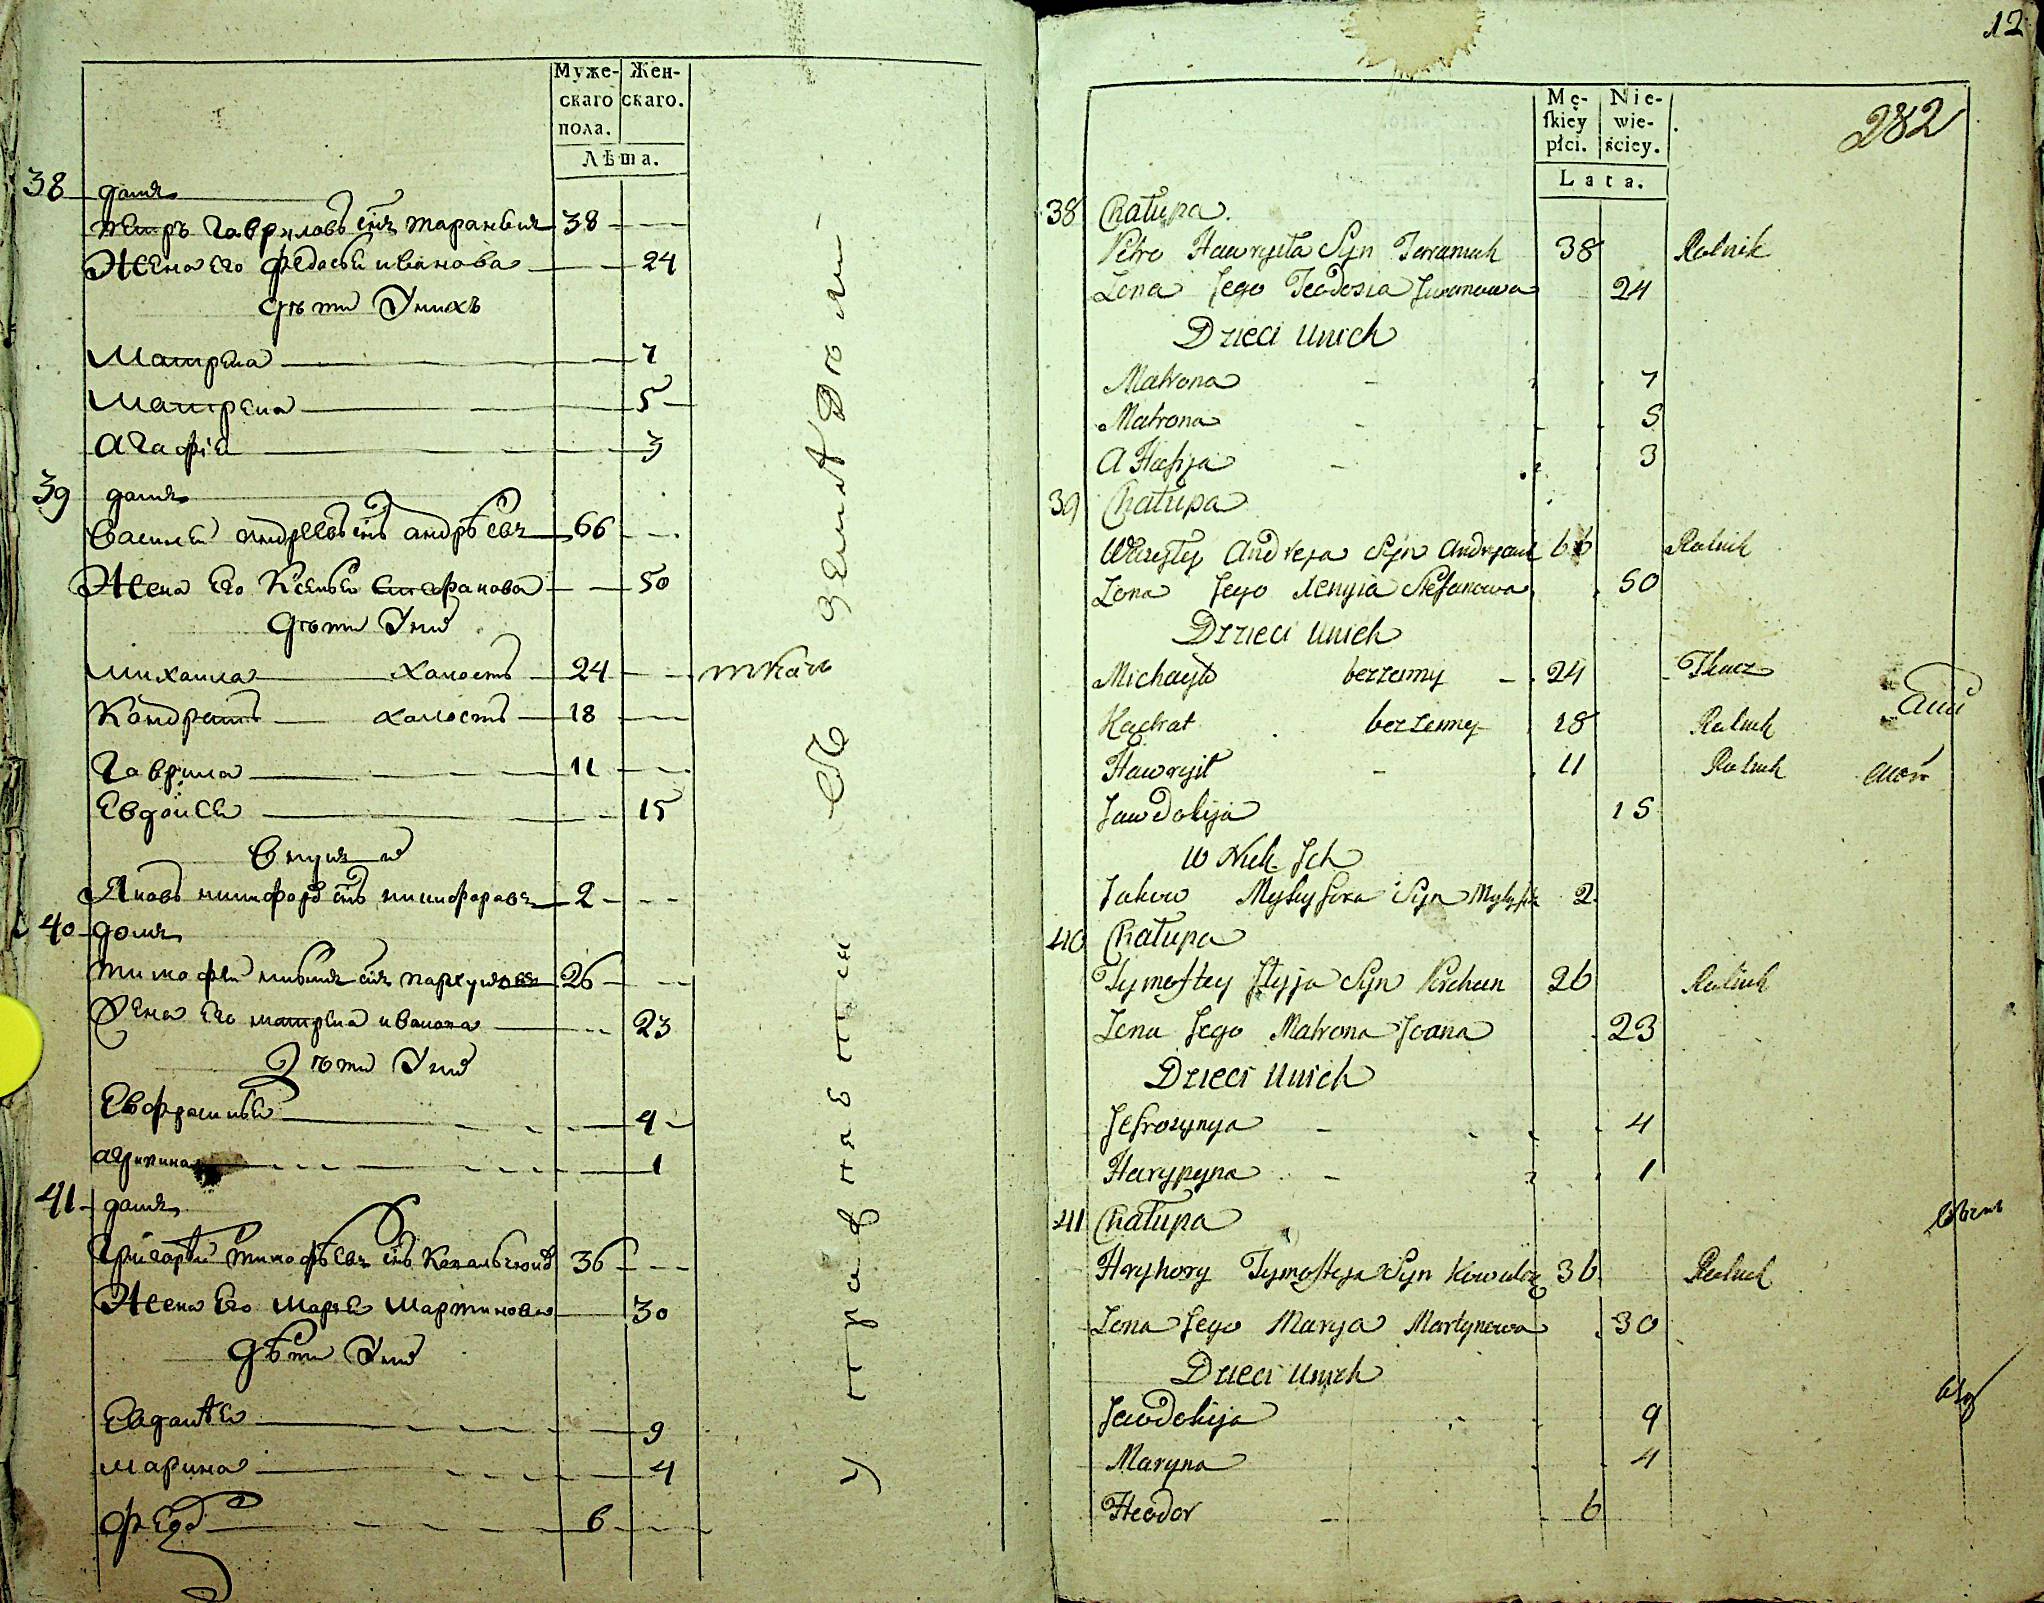 Муже- Жен-
скаго скаго.
пола.
Лѣта.
38 домъ
петръ Гавриловъ снъ таранъюкъ 38
Жена его федосья иванова 24
дѣти Унихъ
Матрена 7
Матрена 5
Агафія 3
39 домъ
Василей андреевъ снъ андрѣевъ 66
Жена Его Ксенья Стефанова 50
дѣти Уни
михаила холостъ 24 ткачь
Кондратъ холостъ 18
Гаврила 11
Евдокія 15
Внукъ и
Яковъ никифоръ снъ никифоровъ 2
40 домъ
тимофей снъ 26
Жена Его матрена иванова 23
Дѣти Уни
Евфросинья 4
агрипина 1
41 домъ
Григорей тимофѣевъ снъ Ковальчюкъ 36
Жена Его Марья Мартинова 30
дѣти Уни
Евдокія 9
марина 4
федо 6
Управнавпсн съ землѣдѣли
12
282
Mę- Nie-
skiey wie-
płci. ściey.
Lata.
38 Chałupa
Petro Hawryła Syn Taraniuk 38 Rolnik
Zona Jego Teodosia Jwanowa 24
Dzieci Unich
Matrona 7
Matrona 5
A Hafija 3
39 Chałupa
Wasyly Andreja Syn Andrjeiuk 66 Rolnik
Zona Jego Xenyia Stefanowa 50
Dzieci Unich
Michayło bezzenny 24 Tkacz
Kądrat bezzenny 18 Rolnik
Hawryił 11 Rolnik
Jawdokija 15
W Nuk Jch
Jakow Mykyfora Syn 2
40 Chałupa
Tymoftey Syn 26 Rolnik
Zona Jego Matrona Joana 23
Dzieci Unich
Jefrozynya 4
Harypyna 1
41 Chałupa
Hryhory Tymofteja Syn Kowalcz 36 Rolnik
Zona Jego Marya Martynowa 30
Dzieci Unich
Jewdokija 9
Maryna 4
Fteodor 6